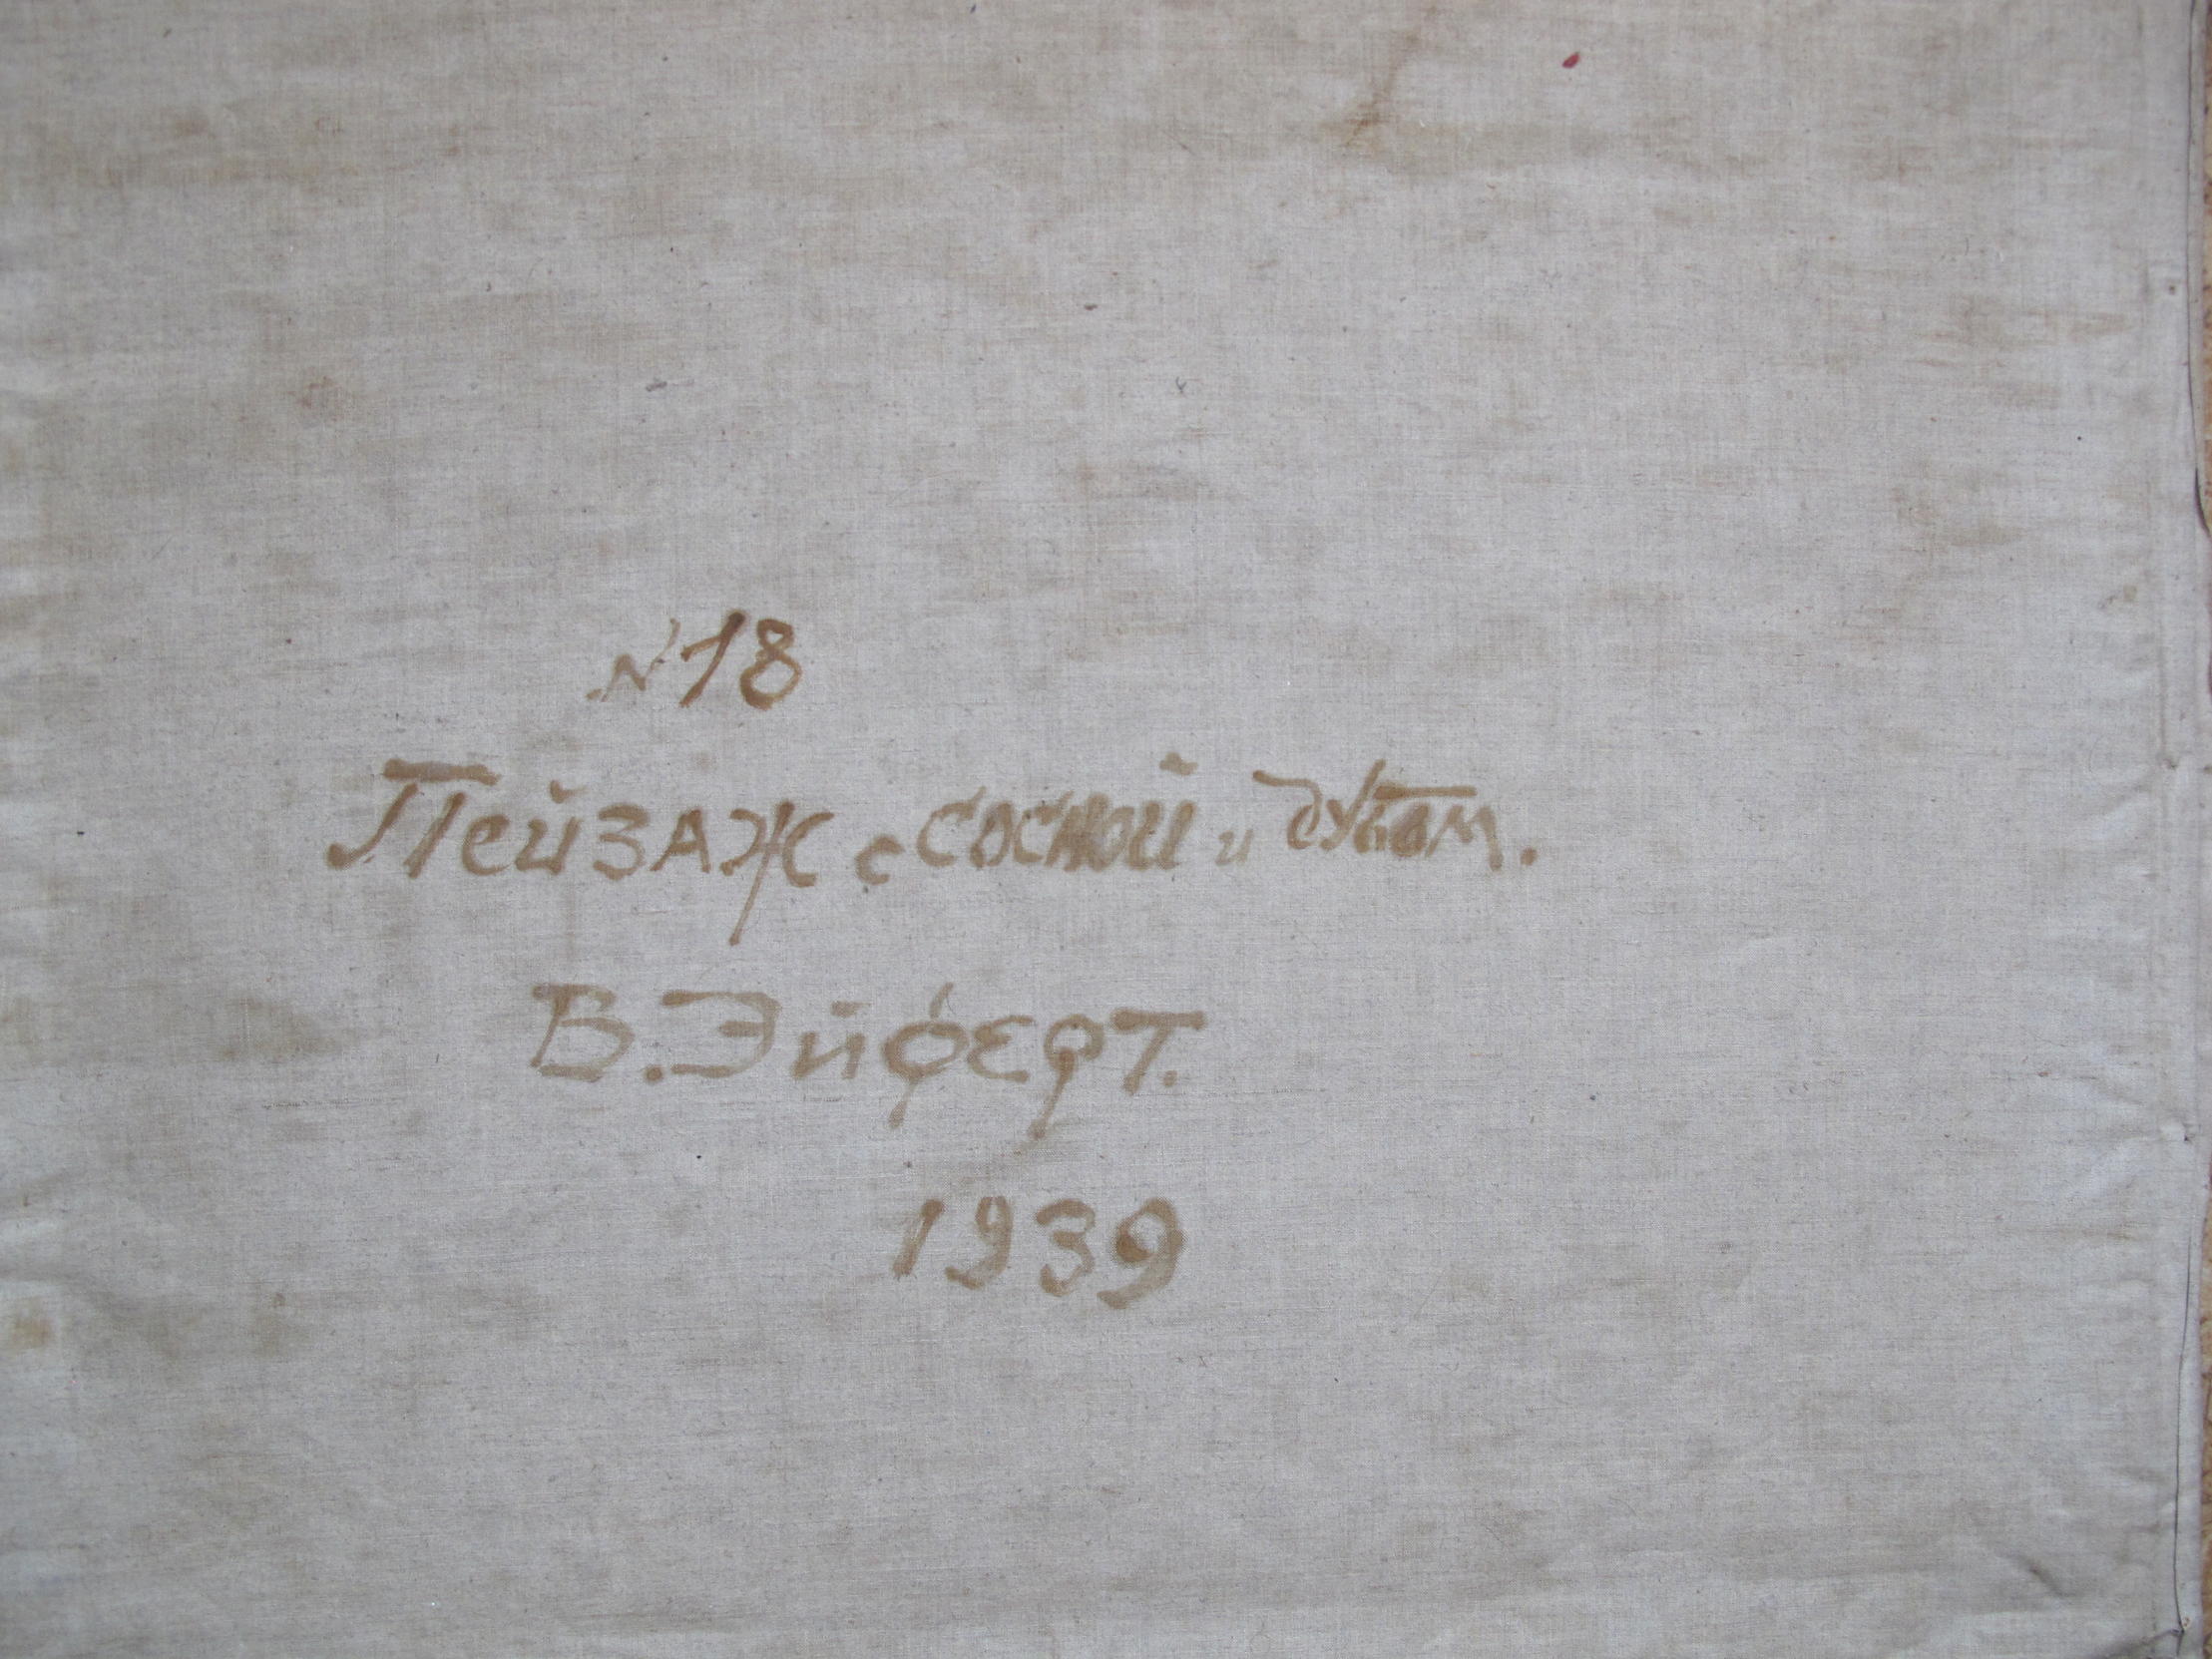 N 18
Пейзаж с сосной и дубом.
В. Эйферт.
1939